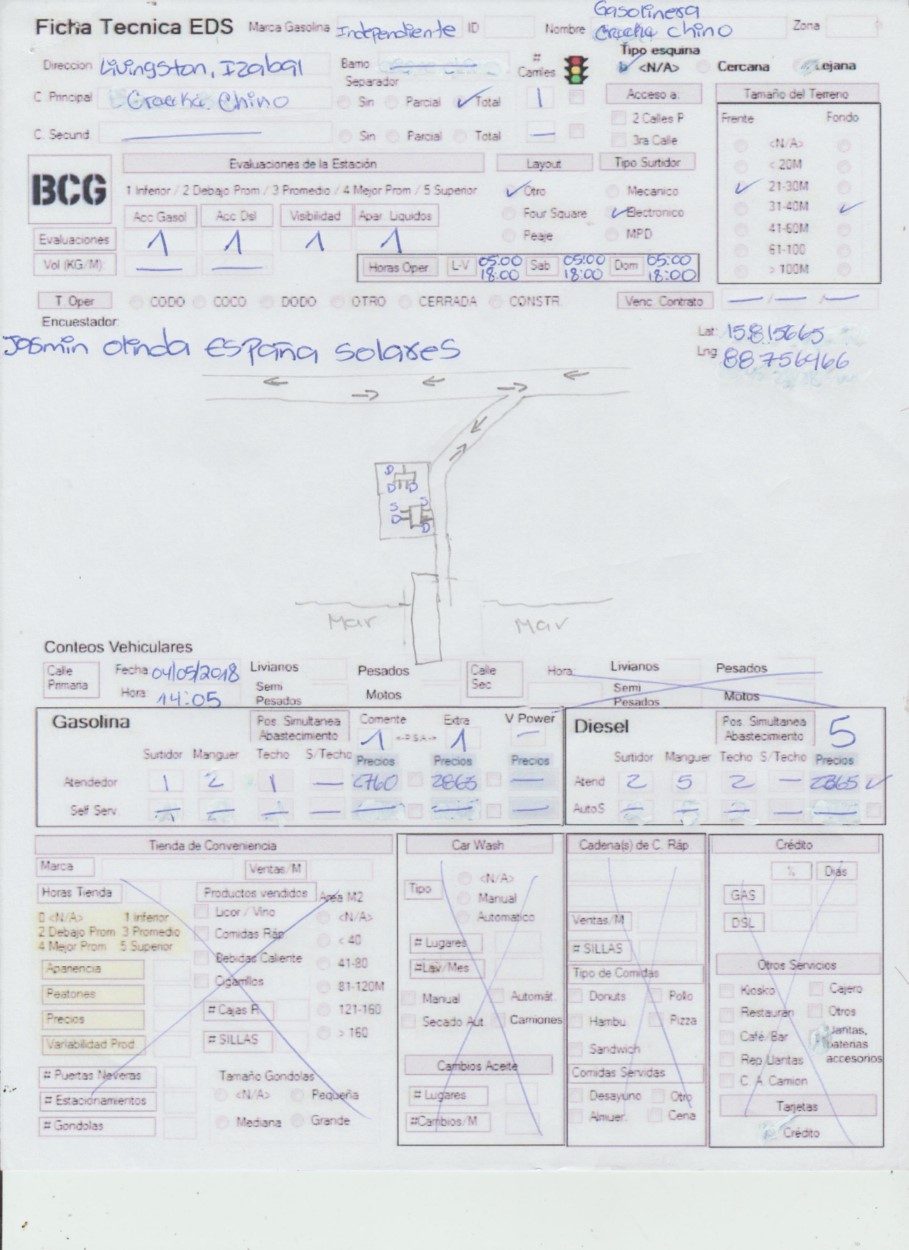 Ficha Tecnica EDS Marca Gasolina Independiente ID Nombre Gasolinera Cracka Chino Zona
Direccion Livingston, Izabal Barrio # Carriles Tipo esquina <N/A> Cercana Lejana
Separador
C. Principal Cracka Chino Sin Parcial Total 1 Acceso a: Tamaño del Terreno
C. Secund. — Sin Parcial Total — 2 Calles P Frente Fondo
3ra Calle <N/A>
BCG Evaluaciones de la Estación Layout Tipo Surtidor < 20M
1 Inferior / 2 Debajo Prom / 3 Promedio / 4 Mejor Prom / 5 Superior Otro Mecanico 21-30M
Acc Gasol Acc Dsl Visibilidad Apar Liquidos Four Square Electronico 31-40M
Evaluaciones 1 1 1 1 Peaje MPD 41-60M
61-100
Vol (KG/M) — — Horas Oper L-V 05:00 18:00 Sab 05:00 18:00 Dom 05:00 18:00 > 100M
T. Oper CODO COCO DODO OTRO CERRADA CONSTR. Venc. Contrato — / — / —
Encuestador:
Jasmin olinda España Solares
Lat 15.815665
Lng 88.756466
D
D D
S S
D D
Mar Mar
Conteos Vehiculares
Calle Primaria Fecha 04/05/2018 Livianos Pesados Calle Sec Hora: Livianos Pesados
Hora: 14:05 Semi Pesados Motos Semi Pesados Motos
Gasolina Pos. Simultanea Abastecimiento Corriente 1 Extra 1 V Power — Diesel Pos. Simultanea Abastecimiento 5
Surtidor Manguer Techo S/Techo Precios Precios Precios Surtidor Manguer Techo S/Techo Precios
Atendedor 1 2 1 — 2760 2865 — Atend 2 5 2 — 2365
Self Serv. — — — — — — — AutoS — — — — —
Tienda de Conveniencia Car Wash Cadena(s) de C. Ráp Crédito
Marca Ventas/M <N/A> % Dias
Horas Tienda Productos vendidos Area M2 Tipo Manual GAS
0 <N/A> 1 Inferior Licor / Vino <N/A> Automatico Ventas/M DSL
2 Debajo Prom 3 Promedio Comidas Ráp < 40 # Lugares # SILLAS
4 Mejor Prom 5 Superior Bebidas Caliente 41-80 #Lav/Mes Tipo de Comidas Otros Servicios
Apariencia Cigarrillos 81-120M Manual Automát. Donuts Pollo Kiosko Cajero
Peatones # Cajas R. 121-160 Secado Aut. Camiones Hambu Pizza Restauran Otros
Precios # SILLAS > 160 Sandwich Café/Bar Llantas, baterias accesorios
Variabilidad Prod Cambios Aceite Comidas Servidas Rep Llantas
# Puertas Neveras Tamaño Gondolas # Lugares Desayuno Otro C. A. Camion
# Estacionamientos <N/A> Pequeña #Cambios/M Almuer. Cena Tarjetas
# Gondolas Mediana Grande Crédito